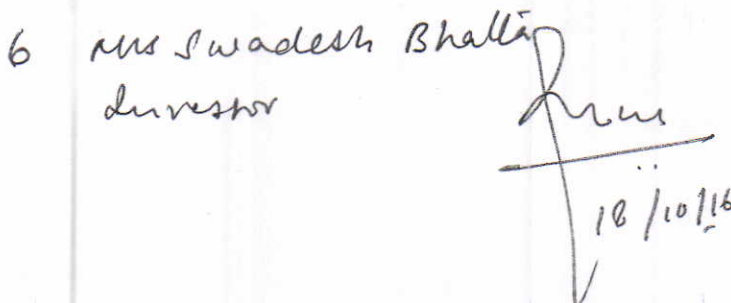 6 Mrs Swadesh Bhalla
Investor
18/10/16